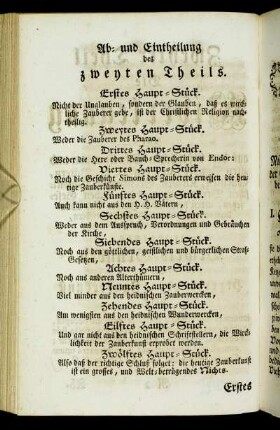 Ab- und Eintheilung
des
zweyten Theils.
Erstes Haupt-Stück.
Nicht der Unglauben, sondern der Glauben, daß es wirck-
liche Zauberer gebe, ist der Christlichen Religion nach-
theilig.
Zweytes Haupt-Stück.
Weder die Zauberer des Pharao.
Drittes Haupt-Stück.
Weder die Hexe oder Bauch-Sprecherin von Endor:
Viertes Haupt-Stück.
Noch die Geschicht Simons des Zauberers erweisen die heu-
tige Zauberkünste.
Fünftes Haupt-Stück.
Auch kann nicht aus den H. H. Vätern,
Sechstes Haupt-Stück.
Weder aus dem Ausspruch, Verordnungen und Gebräuchen
der Kirche,
Siebendes Haupt-Stück.
Noch aus den göttlichen, geistlichen und bürgerlichen Straf-
Gesetzen,
Achtes Haupt-Stück.
Noch aus anderen Alterthümern,
Neuntes Haupt-Stück.
Viel minder aus den heidnischen Zauberwercken,
Zehendes Haupt-Stück.
Am wenigsten aus den heidnischen Wunderwercken,
Eilftes Haupt-Stück.
Und gar nicht aus den heidnischen Schriftstellern, die Würck-
lichkeit der Zauberkunst erprobet werden.
Zwölftes Haupt-Stück.
Also daß der richtige Schluß folget: die heutige Zauberkunst
ist ein grosses, und Welt-betrügendes Nichts.
Erstes